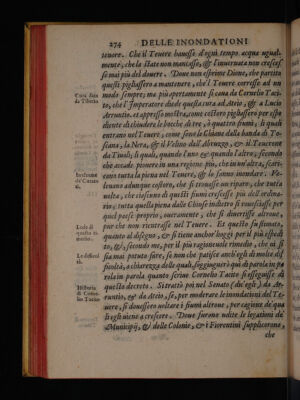 274 DELLE INONDATIONI
tenore. Che il Teuere hauesse d'ogni tempo acque vgualmente,
che la state non mancasse, & l'inuernata non crescesse
mai più del douere. Doue non esprime Dione, che partito
questi pigliassero a mantenere, che'l Teuere corresse ad un
modo sempre; ma più apertamente si cana da Cornelio Tacito,
che l'Imperatore diede questa cura ad Ateio, & a Lucio
Arruntio. et appresso mostra, come costoro pigliassero per espediente
di chiudere le bocche di tre, o quattro fiumi, li quali
entrano nel Teuere; come sono le Chiane dalla banda di Toscana,
la Nera, & il Velino dall'Abruzzo, & il Teuerone
da Tiuoli; li quali, quando l'uno & quando l'altro, secondo
che accade, piouere in una regione più, che in un'altra, scaricano
tutta la piena nel Teuere, & lo fanno inondare. Volenano
adunque costoro, che si trouasse un riparo, che tutta
volta, che ciascuno di questi fiumi crescesse più dell'ordinario;
tutta quella piena dalle Chiuse indietro si rouesciasse per
quel paese proprio, oueramente, che si diuertisse altroue,
pur che non rientrasse nel Teuere. Et questo fu stimato,
quanto al disegno, & si tiene anchor hoggi per il più espedito,
&, secondo me, per il più ragioneuole rimedio, che ui si
sia mai potuto fare, se non che patisce anch'egli di molte difficoltà,
a chiarezza delle quali, soggiungerò qui di parola in parola
quanto scriue Cornelio Tacito se esseguisse di
questo decreto. Si trattò poi nel Senato (dic'egli) da Arruntio,
& da Ateio, se, per moderare le inondationi del Teuere,
si douessero voltare i fiumi altroue, per cagione de' quali
egli viene a crescere. Doue furono udite le legationi de'
Municipij, & delle Colonie, & i Fiorentini supplicorono,
che
Cura data
da Tiberio
Lode di
questo rimedio.
Le difficoltà.
Historia
di Cornelio
Tacito